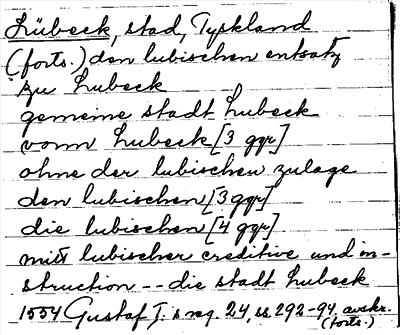 Lübeck, stad, Tyskland
(forts.) den lubischen entsatz
zu Lubeck
gemeine stadt Lubeck
vonn Lubeck [3 ggr]
ohne der lubischen zulage
den lubischen [3 ggr]
die lubischen [4 ggr]
mitt lubischer creditive und in-
struction -- die stadt Lubeck
1554 Gustaf I:s reg. 24, ss. 292-94, avskr.
(forts.)